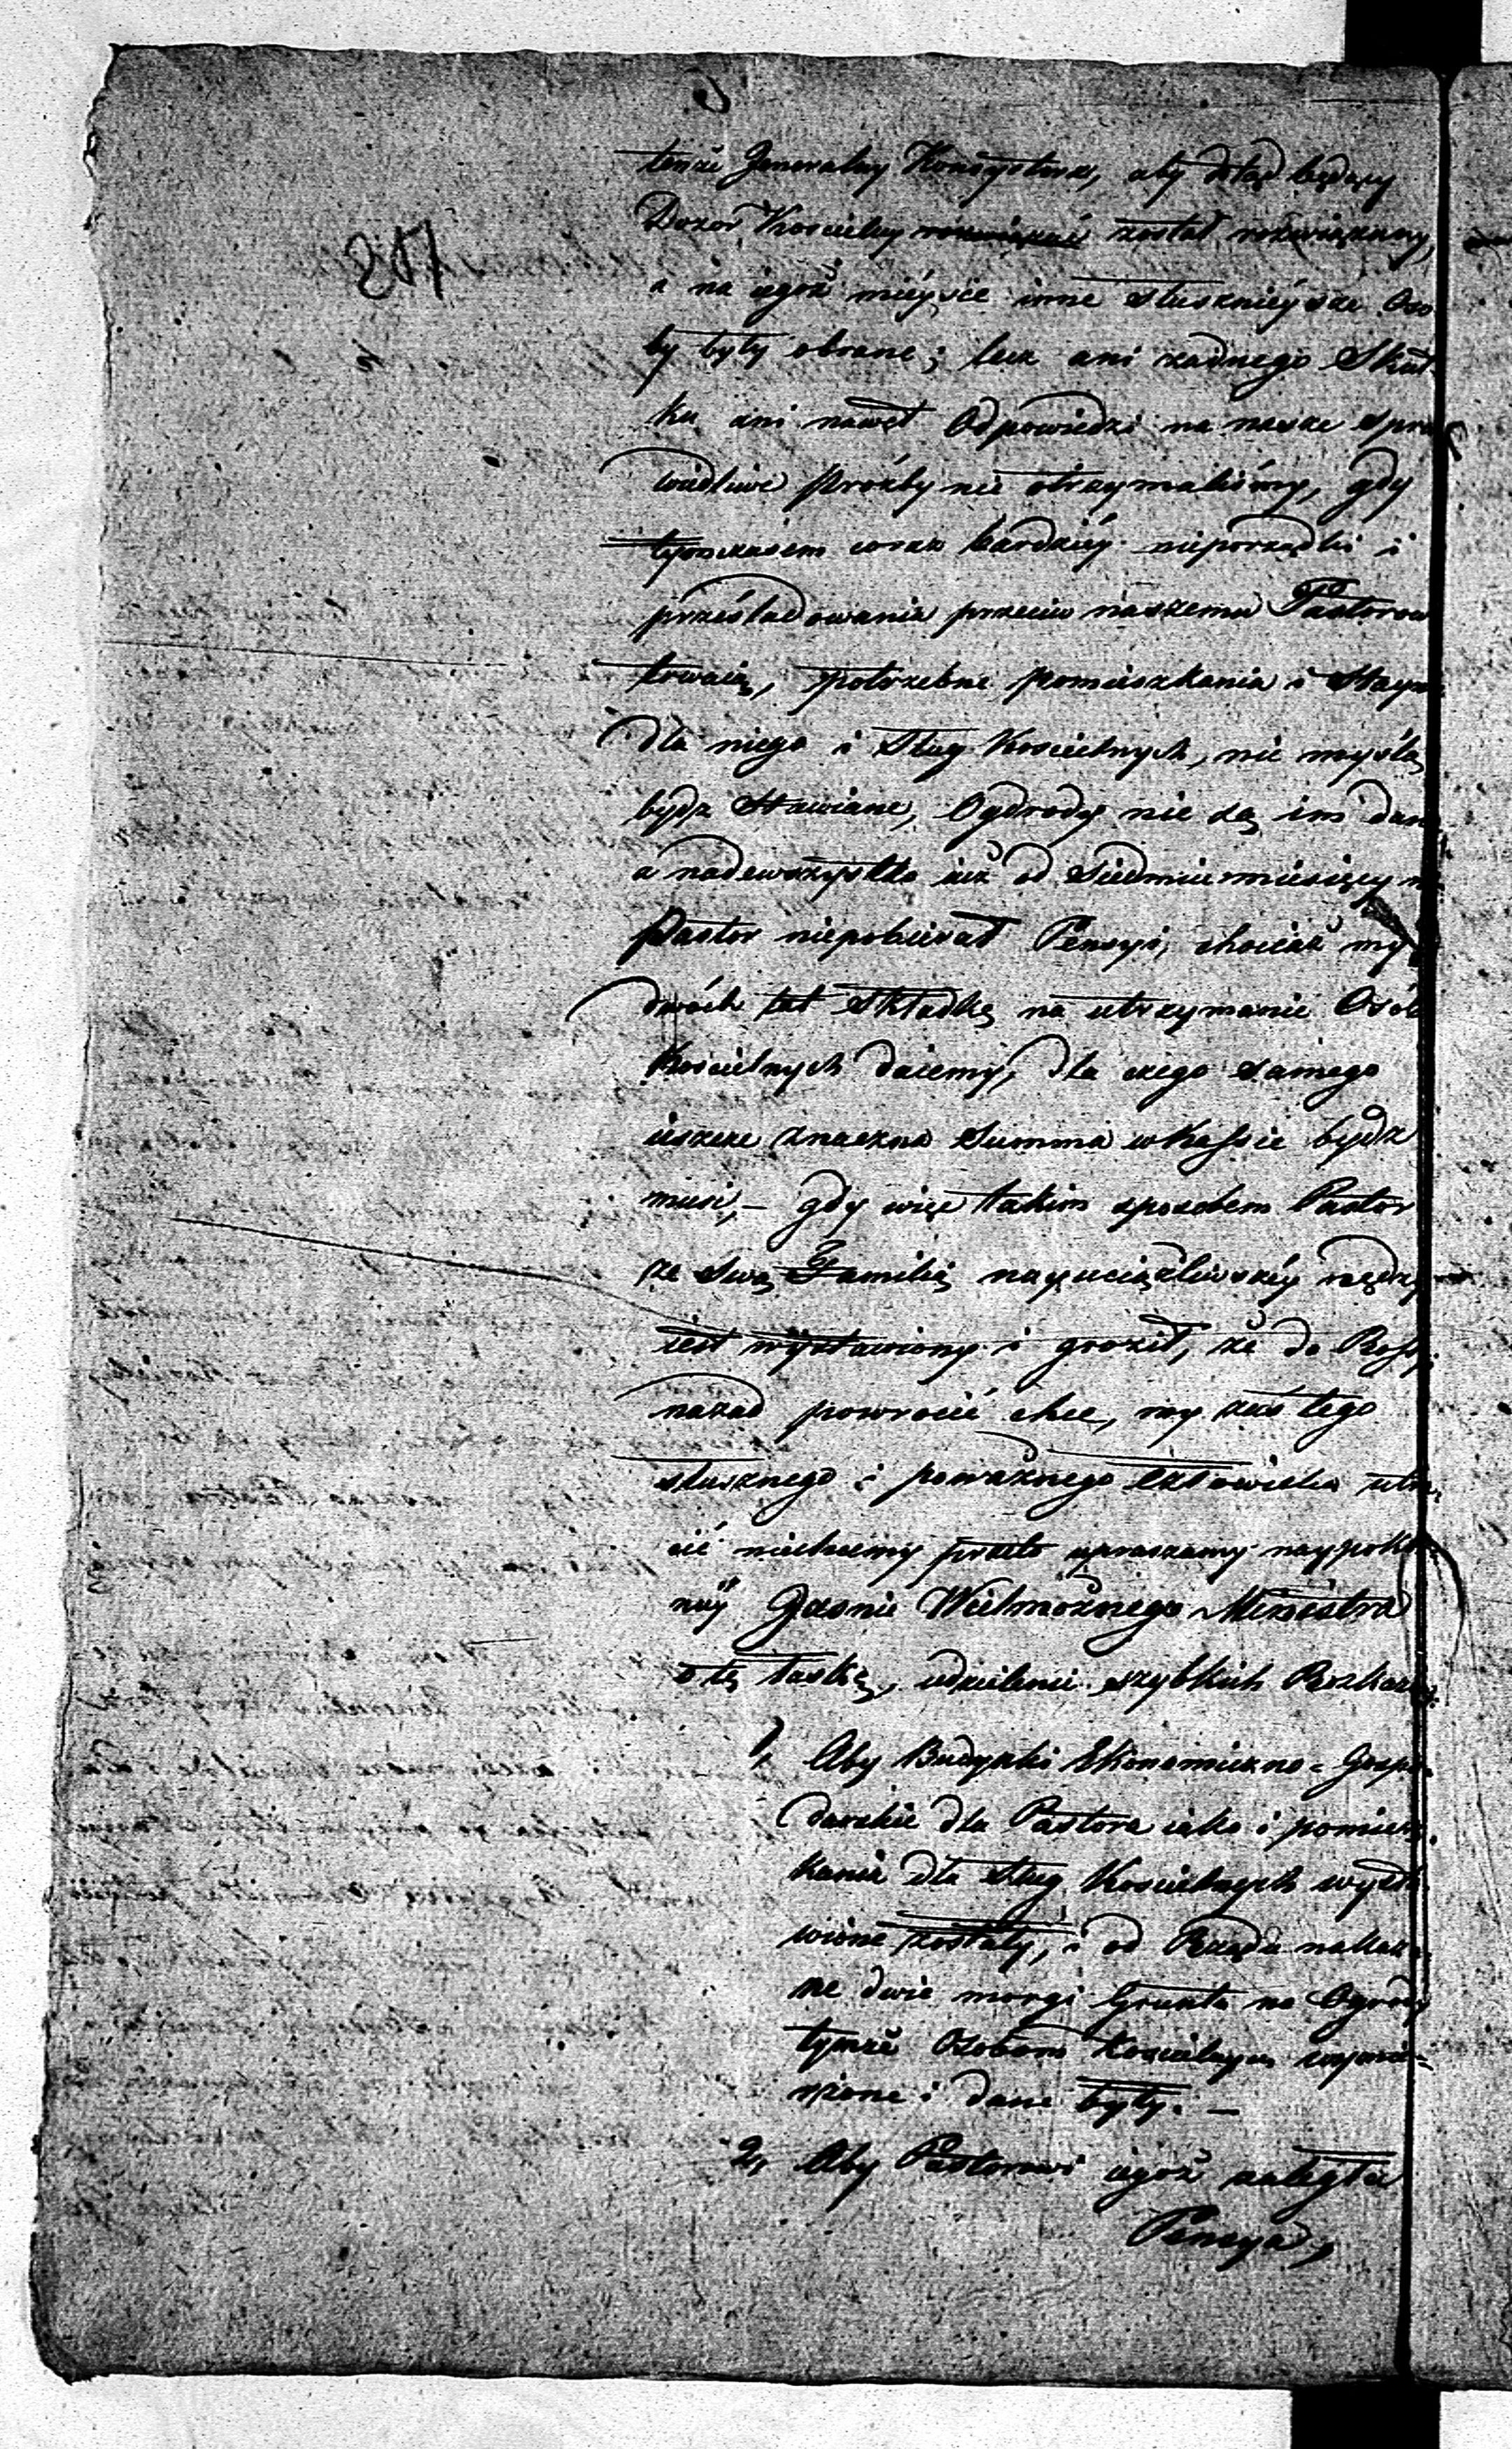 tenże Jeneralny Konsystorz, aby dotąd będący
Dozór Kościelny rozwiązać został rozwiązany,
a na iegoż mieysce inne słusznieysze Oso
by były obrane; lecz ani żadnego Skut
ku ani nawet Odpowiedzi na nasze spra
wiedliwe proźby nie otrzymaliśmy, gdy
tymczasem coraz bardziéy nieporządki i
prześladowania przeciw naszemu Pastorow
trwaią, potrzebne pomieszkania i Stayn
dla niego i Sług Kościelnych, nie myślą
bydz stawiane, Ogdrody nie są im dan
a nadewszystko iuż od Siedmiu miesięcy n
Pastor niepobierał Pensyi, chociaż my
dwóch lat Składkę na utrzymanie Osób
Kościelnych daiemy, dla czego samego
ieszcze znaczna Summa w Kassie bydz
musi, – gdy więc takim sposobem Pastor
ze swą Familią nayuciążliwszéy nędzy
iest wystawiony i groził, że do Ross
nazad powrocić chce, my zaś tego
słusznego i poważnego człowieka utra
cić niechcemy przeto upraszamy naypokor
niéy Jasnie Wielmożnego Ministra
o tę łaskę, udzielenie szybkich Rozkaz
1, Aby Budynki Ekonomiczno-Gospo
darskie dla Pastora iako i pomiesz
kania dla Sług Kościelnych wysta
wione zostały, i od Rządu nakaza
ne dwie morgi Gruntu na Ogrody
tymże Osobom Kościelnym wymie-
rzone i dane były. –
2, Aby Pastorowi iegoż zaległa
Pensya,